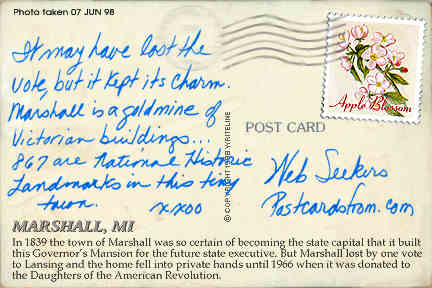 Photo taken 07 JUN 98
It may have lost the
vote, but it kept its charm.
Marshall is a goldmine of
Victorian buildings...
867 are National Historic
Landmarks in this tiny
town. xxoo
Apple Blossom
POST CARD
© COPYRIGHT 1998 WRITELINE
Web Seekers
Postcardsfrom.com
MARSHALL, MI
In 1839 the town of Marshall was so certain of becoming the state capital that it built
this Governor's Mansion for the future state executive. But Marshall lost by one vote
to Lansing and the home fell into private hands until 1966 when it was donated to
the Daughters of the American Revolution.